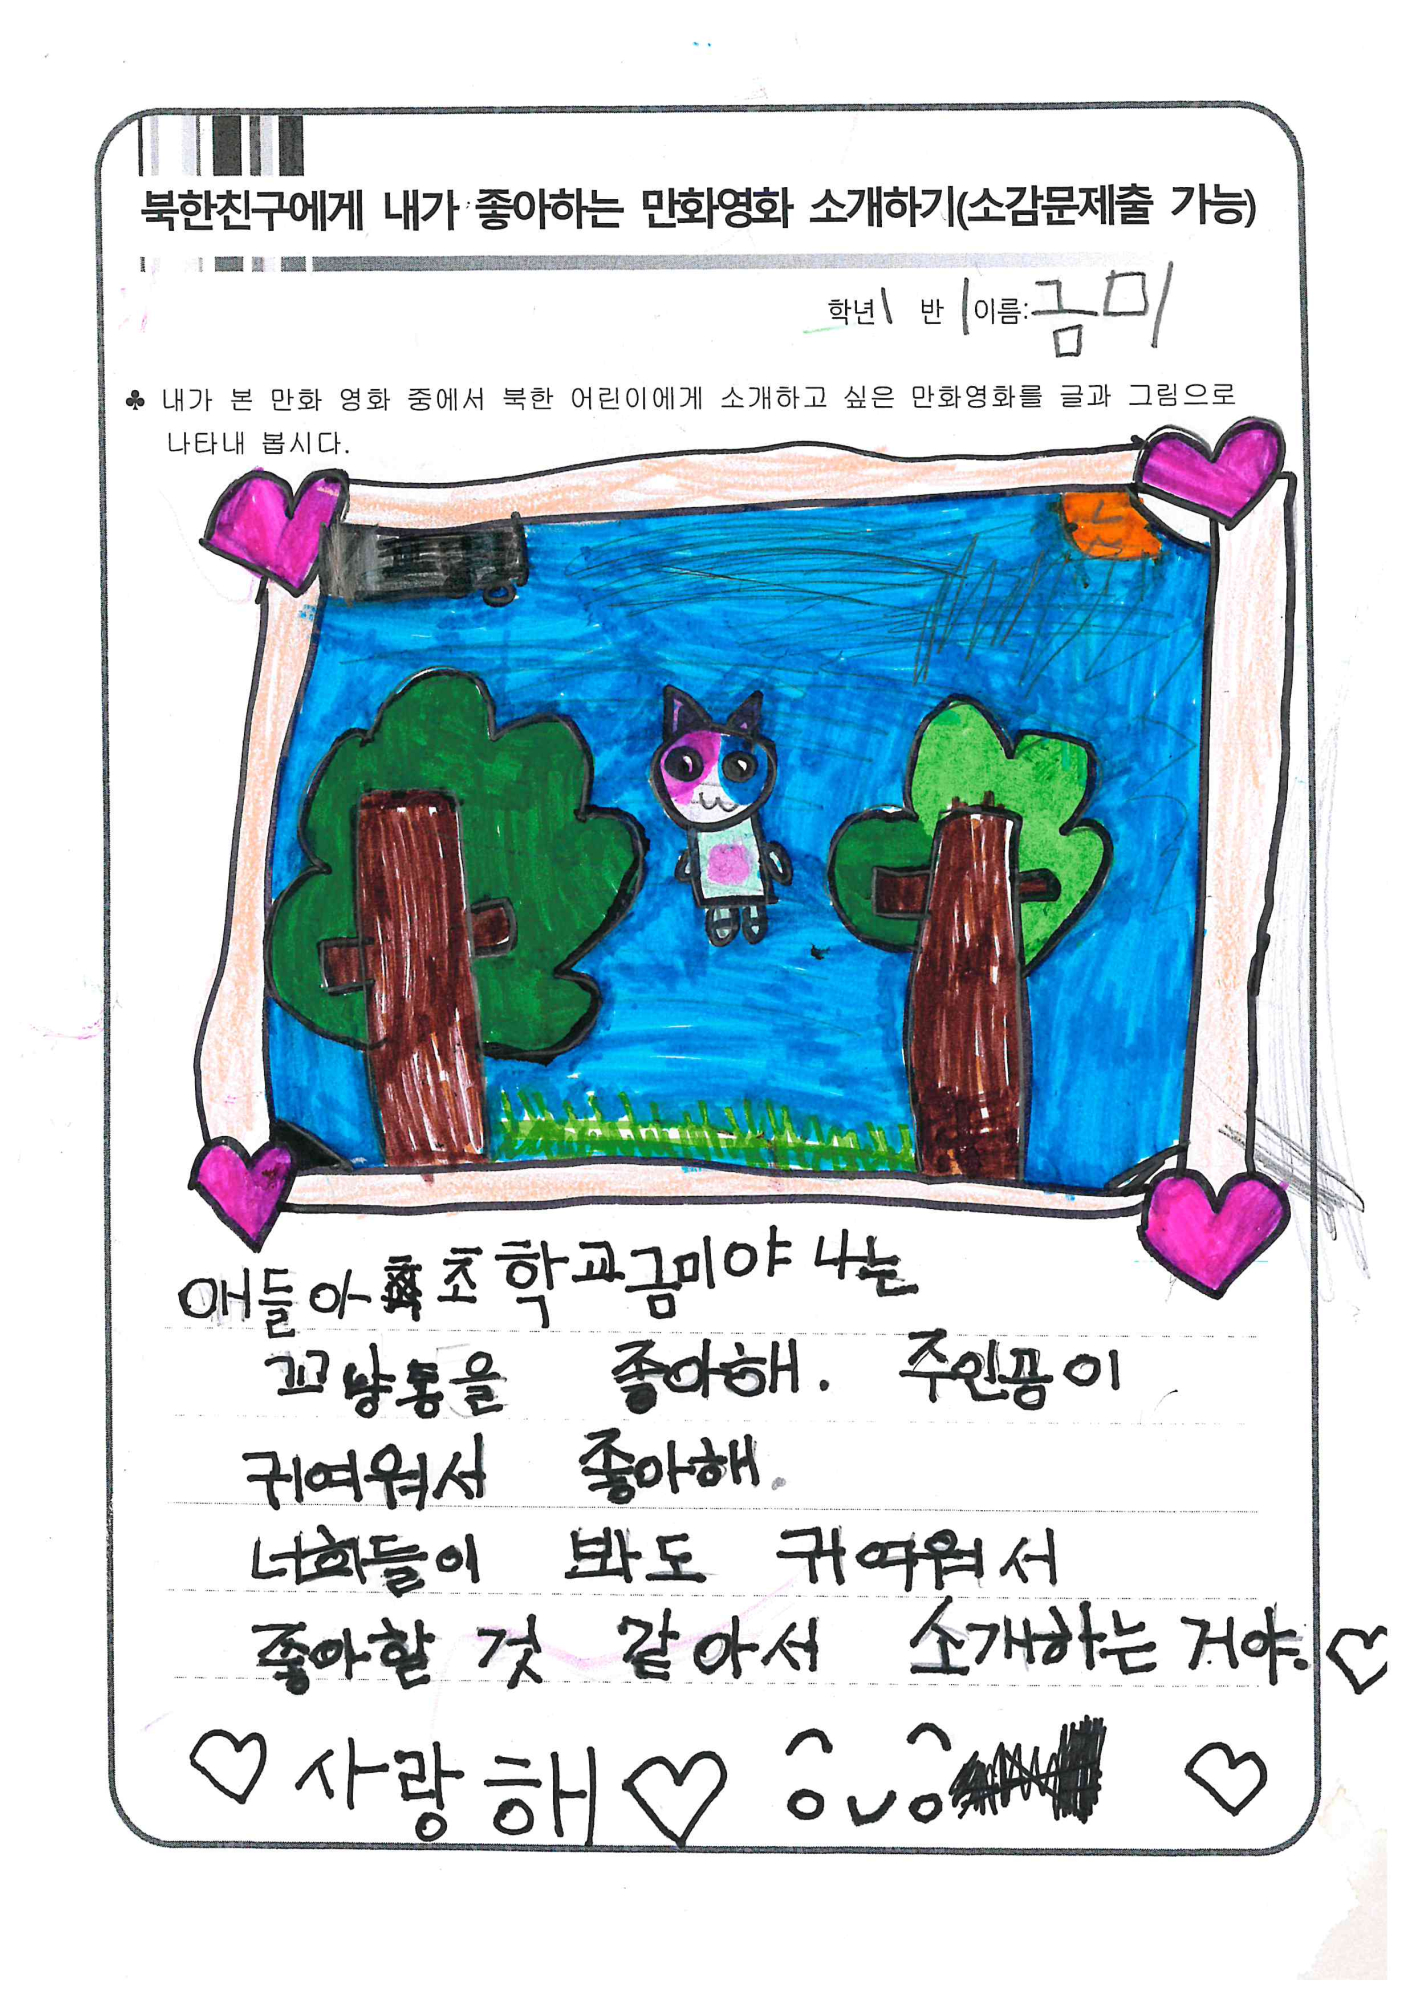 북한친구에게 내가 좋아하는 만화영화 소개하기(소감문제출 가능)
학년 1 반 1 이름: 금미
♣ 내가 본 만화 영화 중에서 북한 어린이에게 소개하고 싶은 만화영화를 글과 그림으로
나타내 봅시다.
애들아 초학교금미야 나는
꼬냥통을 좋아해. 주인공이
귀여워서 좋아해.
너희들이 봐도 귀여워서
좋아할 것 같아서 소개하는 거야.♡
♡ 사랑해 ♡ ♡